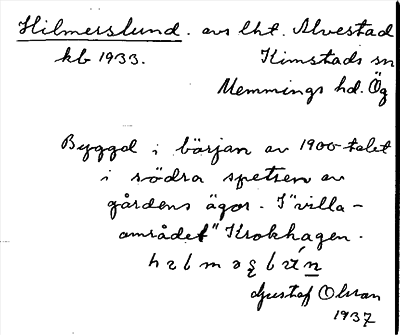 Hilmerslund. avs lht. Alvestad
kb 1933. Kimstads sn
Memmings hd. Ög
Byggd i början av 1900-talet
i södra spetsen av
gårdens ägor. I "villa-
området" Krokhagen.
Gustaf Olsson
1937